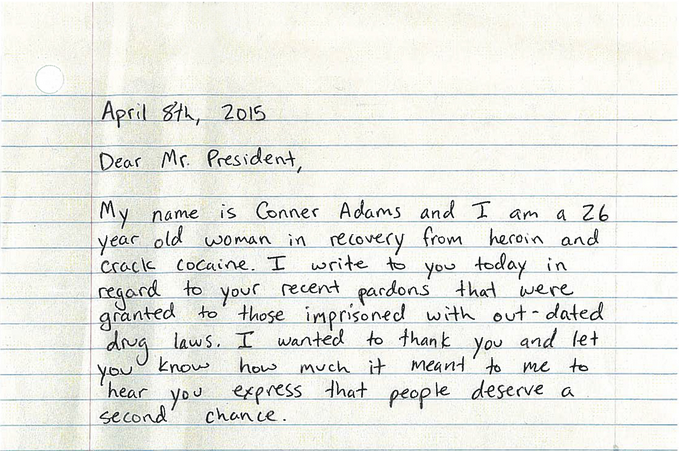 April 8th, 2015
Dear Mr. President,
My name is Conner Adams and I am a 26
year old woman in recovery from heroin and
crack cocaine. I write to you today in
regard to your recent pardons that were
granted to those imprisoned with out-dated
drug laws. I wanted to thank you and let
you know how much it meant to me to
hear you express that people deserve a
second chance.